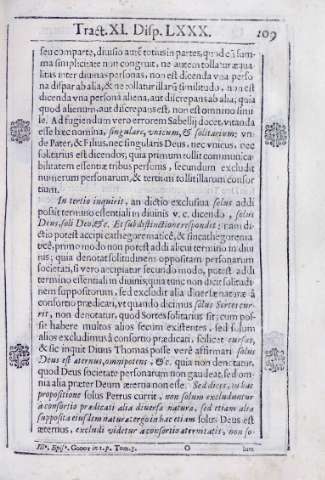 Tract. XI. Disp. LXXX. 109
seu comparte, diuisio autē totius in partes, quod cū sum-
ma simplicitate non congruit, ne autem tollatur æqua-
litas inter diuinas personas, non est dicenda vna perso
na dispar ab alia, & ne tollatur illarū similitudo, non est
dicenda vna persona aliena, aut discrepans ab alia; quia
quod alienum, aut discrepans est, non est omnino simi
le. Ad fugiendum vero errorem Sabellij docet, vitanda
esse hæc nomina, singulare, vnicum, & solitarium: vn-
de Pater, & Filius, nec singularis Deus, nec vnicus, nec
solitarius est dicendus; quia primum tollit communica-
bilitatem essentiæ tribus personis, secundum excludit
numerum personarum, & tertium tollit illarum consor
tium.
In tertio inquirit, an dictio exclusiua solus addi
possit termino essentiali in diuinis v. c. dicendo, solus
Deus, soli Deo, &c. Et sub distinctione respondit: nam di-
ctio potest accipi cathegorematicē, & sincathegorema
ticē, primo modo non potest addi alicui termino in diui
nis; quia denotat solitudinem oppositam personarum
societati, si vero accipiatur secundo modo, potest addi
termino essentiali in diuinis; quia tunc non dicit solitudi-
nem suppositorum, sed excludit alia diuersæ naturæ à
consortio prædicati, vt quando dicimus solus Sortes cur-
rit, non denotatur, quod Sortes solitarius sit; cum pos-
sit habere multos alios secum existentes, sed solum
alios excludimus à consortio prædicati, scilicet cursus,
& sic inquit Diuus Thomas posse verè affirmari solus
Deus est æternus, omnipotens, &c. quia non denotatur,
quod Deus societate personarum non gaudeat, sed om-
nia alia præter Deum æterna non esse. Sed dices, in hac
propositione solus Petrus currit, non solum excluduntur
à consortio prædicati alia diuersa natura, sed etiam alia
supposita eiusdem naturæ: ergo in hac etiam solus Deus est
æternus, excludi videtur à consortio æternitatis, non so-
Illᵐ. Episᵖ. Godoy in 1. p. Tom. 3. O lum